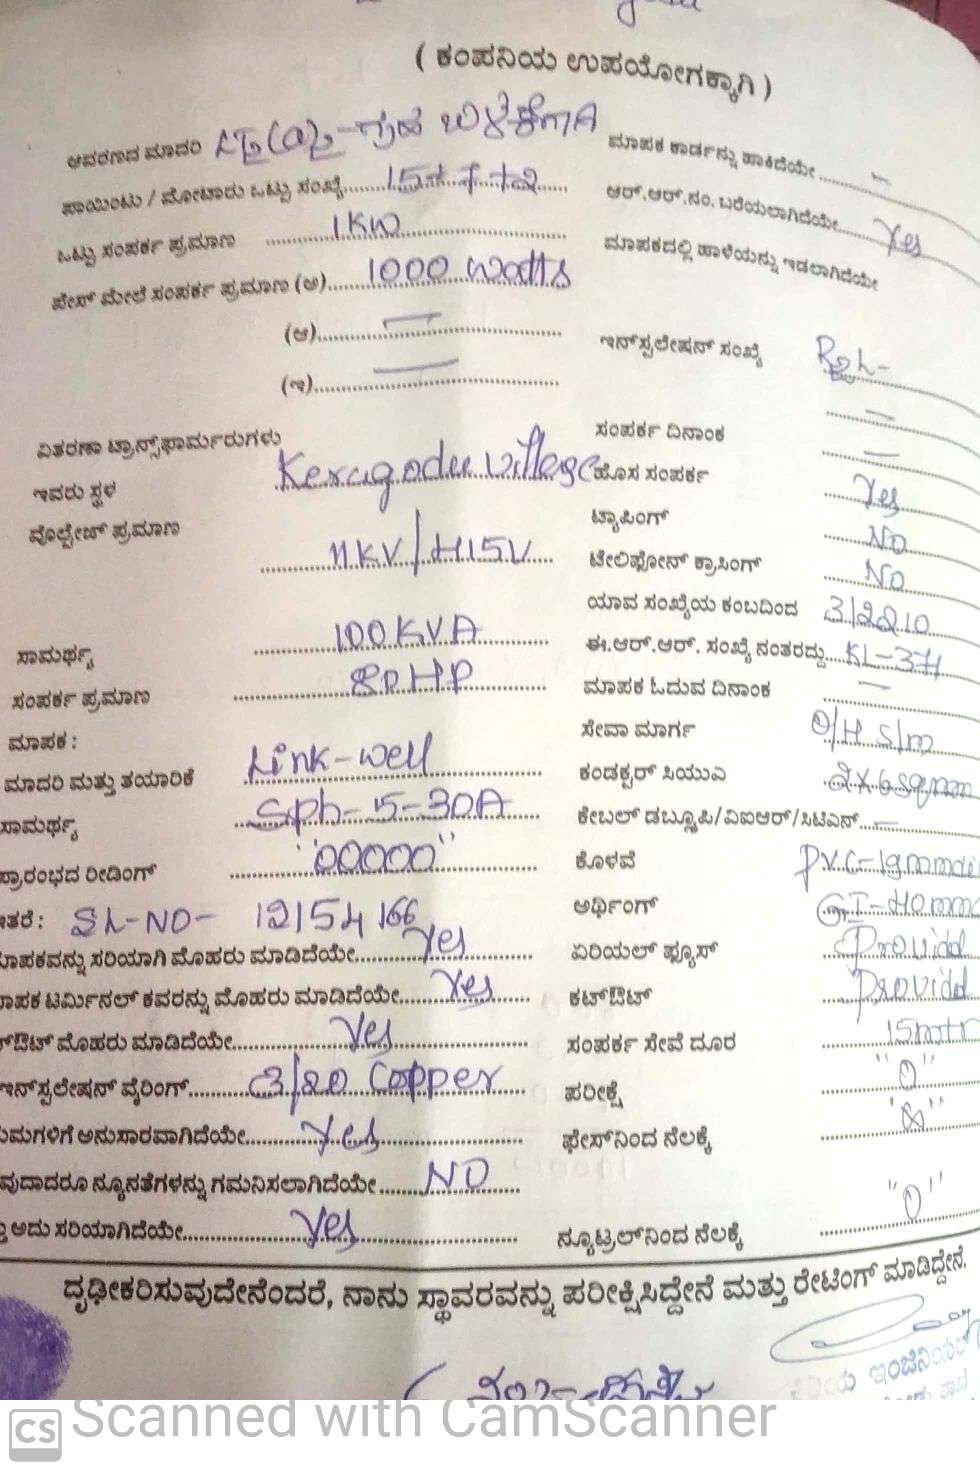 ( ಕಂಪನಿಯ ಉಪಯೋಗಕ್ಕಾಗಿ )
ಆವರಣದ ಮಾದರಿ
ಮಾಪಕ ಕಾರ್ಡನ್ನು ಹಾಕಿದೆಯೇ
ಪಾಯಿಂಟು / ಮೋಟಾರು ಒಟ್ಟು ಸಂಖ್ಯೆ
ಆರ್.ಆರ್.ನಂ. ಬರೆಯಲಾಗಿದೆಯೇ Yes
ಒಟ್ಟು ಸಂಪರ್ಕ ಪ್ರಮಾಣ 1KW
ಮಾಪಕದಲ್ಲಿ ಹಾಳೆಯನ್ನು ಇಡಲಾಗಿದೆಯೇ
ಫೇಸ್ ಮೇಲೆ ಸಂಪರ್ಕ ಪ್ರಮಾಣ (ಅ) 1000 watts
(ಆ)
ಇನ್‌ಸ್ಟಲೇಷನ್ ಸಂಖ್ಯೆ
(ಇ)
ವಿತರಣಾ ಟ್ರಾನ್ಸ್‌ಫಾರ್ಮರುಗಳು
ಸಂಪರ್ಕ ದಿನಾಂಕ
ಇವರು ಸ್ಥಳ Keragodu village
ಹೊಸ ಸಂಪರ್ಕ Yes
ವೊಲ್ಟೇಜ್ ಪ್ರಮಾಣ 11KV/415V
ಟ್ಯಾಪಿಂಗ್ NO
ಟೇಲಿಫೋನ್ ಕ್ರಾಸಿಂಗ್ NO
ಯಾವ ಸಂಖ್ಯೆಯ ಕಂಬದಿಂದ
ಸಾಮರ್ಥ್ಯ 100KVA
ಈ.ಆರ್.ಆರ್. ಸಂಖ್ಯೆ ನಂತರದ್ದು
ಸಂಪರ್ಕ ಪ್ರಮಾಣ 80HP
ಮಾಪಕ ಓದುವ ದಿನಾಂಕ
ಮಾಪಕ :
ಸೇವಾ ಮಾರ್ಗ O/H S/m
ಮಾದರಿ ಮತ್ತು ತಯಾರಿಕೆ Link-well
ಕಂಡಕ್ಟರ್ ಸಿಯುಎ 2x6sqmm
ಸಾಮರ್ಥ್ಯ Sph-5-30A
ಕೇಬಲ್ ಡಬ್ಲ್ಯೂಪಿ/ವಿಐಆರ್/ಸಿಟಿಎಸ್
ಪ್ರಾರಂಭದ ರೀಡಿಂಗ್ "00000"
ಕೊಳವೆ
ಇತರೆ : SL-NO- 12154166
ಅರ್ಥಿಂಗ್
ಮಾಪಕವನ್ನು ಸರಿಯಾಗಿ ಮೊಹರು ಮಾಡಿದೆಯೇ Yes
ಏರಿಯಲ್ ಫ್ಯೂಸ್ Provided
ಮಾಪಕ ಟರ್ಮಿನಲ್ ಕವರನ್ನು ಮೊಹರು ಮಾಡಿದೆಯೇ Yes
ಕಟ್‌ಔಟ್ Provided
ಔಟ್ ಮೊಹರು ಮಾಡಿದೆಯೇ Yes
ಸಂಪರ್ಕ ಸೇವೆ ದೂರ 15mtr
ಇನ್‌ಸ್ಟಲೇಷನ್ ವೈರಿಂಗ್ 3/20 Copper
ಪರೀಕ್ಷೆ "0"
ಅನುಸಾರವಾಗಿದೆಯೇ Yes
ಫೇಸ್‌ನಿಂದ ನೆಲಕ್ಕೆ
ನ್ಯೂನತೆಗಳನ್ನು ಗಮನಿಸಲಾಗಿದೆಯೇ NO
ಅದು ಸರಿಯಾಗಿದೆಯೇ Yes
ನ್ಯೂಟ್ರಲ್‌ನಿಂದ ನೆಲಕ್ಕೆ "0"
ದೃಢೀಕರಿಸುವುದೇನೆಂದರೆ, ನಾನು ಸ್ಥಾವರವನ್ನು ಪರೀಕ್ಷಿಸಿದ್ದೇನೆ ಮತ್ತು ರೇಟಿಂಗ್ ಮಾಡಿದ್ದೇನೆ.
CS Scanned with CamScanner